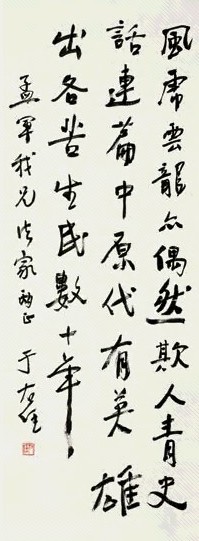 風虎雲龍亦偶然欺人青史
話連篇中原代有英雄
出各苦生民數十年
孟軍我兄法家兩正 于右任